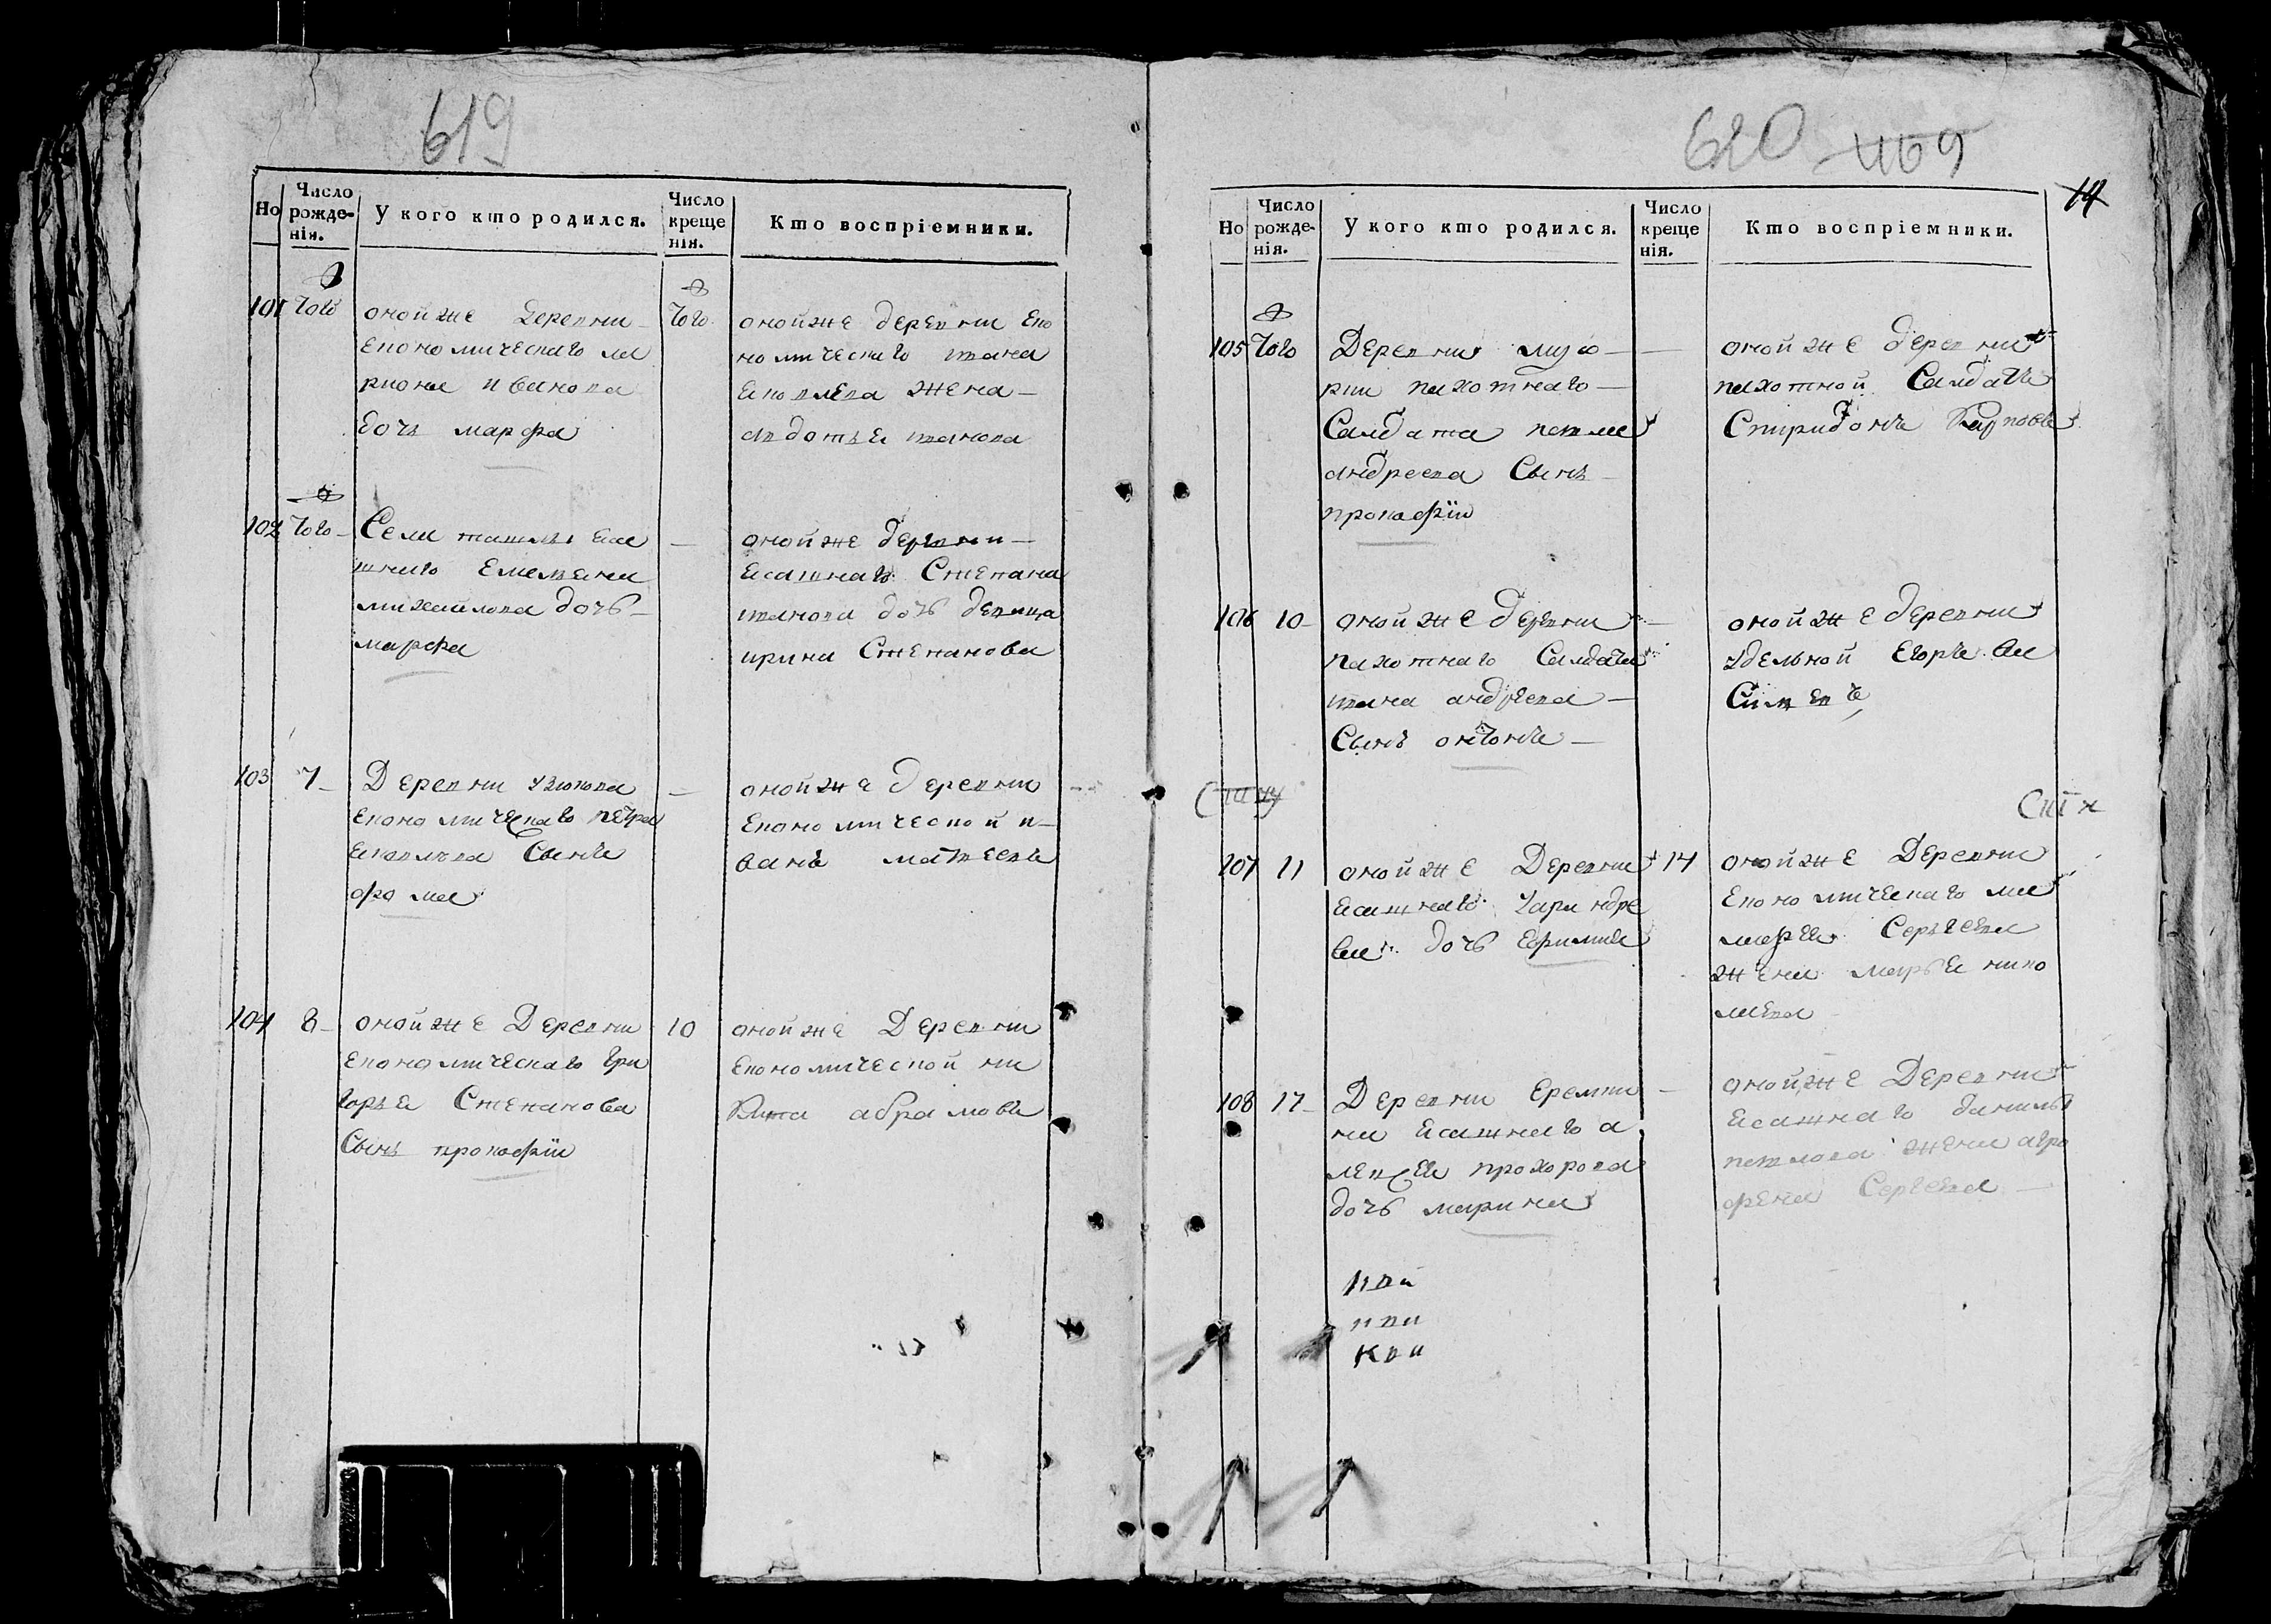 619
Но
Число рожде-нія.
У кого кто родился.
Число креще нія.
Кто воспріемники.
101 того
оной же деревни
економическаго ла
риона иванова
дочь марфа
того
оной же деревни еко
номическаго ивана
яковлева жена
авдотья иванова
102 того
Села ташлы яса
шнаго емельяна
михайлова дочь
марфа
оной же деревни
ясашнаго Степана
иванова дочь девица
ирина Степанова
103 7
Деревни
економическаго петра
яковлева Сынъ
фома
оной же деревни
економической и
ванъ матвеевъ
104 8
оной же Деревни
економическаго гри
горья Степанова
Сынъ прокофiй
10
оной же Деревни
економической ни
кита абрамовъ
620 469
14
Но
Число рожде-нія.
У кого кто родился.
Число креще нія.
Кто воспріемники.
105 того
Деревни
пахотнаго
Салдата павла
андреева Сынъ
прокофiй
оной же деревни
пахотной Салдатъ
Спиридонъ Карповъ
106 10
оной же деревни
пахотнаго Салдата
ивана андреева
Сынъ онтонъ
оной же деревни
удельной Егоръ ва
Сильевъ
107 11
оной же Деревни
ясашнаго
дочь Ефимия
14
оной же Деревни
економическаго ма
Сергеева
жена марья нико
лаева
108 17
Деревни Еремки
на ясашнаго а
лексея прохорова
дочь марина
оной же Деревни
ясашнаго данилы
павлова жена агра
фена Сергеева